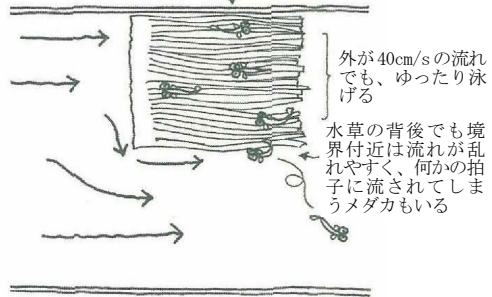 外が40cm/sの流れ
でも、ゆったり泳
げる
水草の背後でも境
界付近は流れが乱
れやすく、何かの拍
子に流されてしま
うメダカもいる